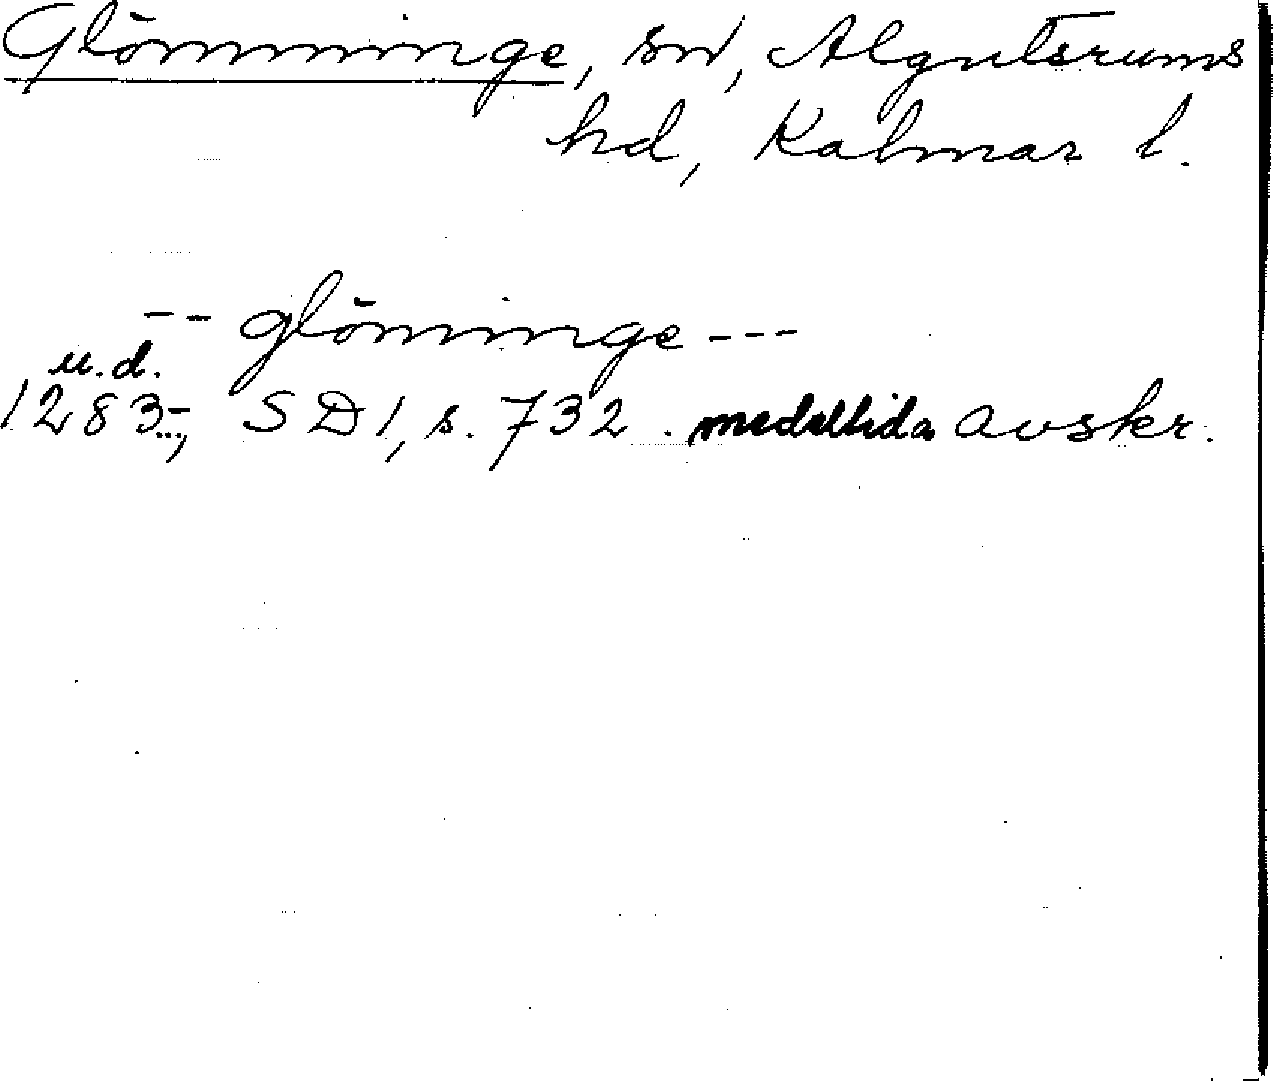 Glömminge, sn, Algutsrums
hd, Kalmar l.
-- glöminge ---
u.d.
1283-, SD 1, s. 732. medeltida avskr.